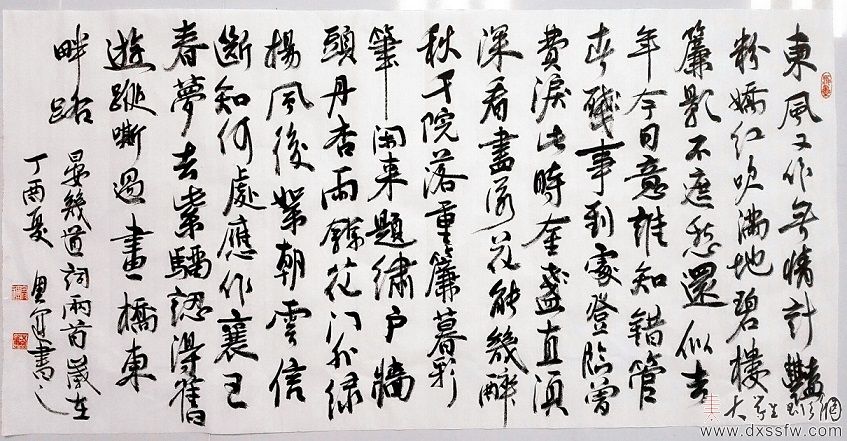 東風又作無情計艷
粉嬌紅吹滿地碧樓
簾影不遮愁還似去
年今日意誰知錯管
春殘事到處登臨曾
費淚此時金盞直須
深看盡落花能幾醉
秋千院落重簾暮彩
筆閑來題繡户牆
頭丹杏雨餘花門外綠
楊風後絮朝雲信
斷知何處應作襄王
春夢去紫騮認得舊
遊蹤嘶過畫橋東
畔路
晏幾道詞兩首歲在
丁酉夏書之
www.dxssfw.com